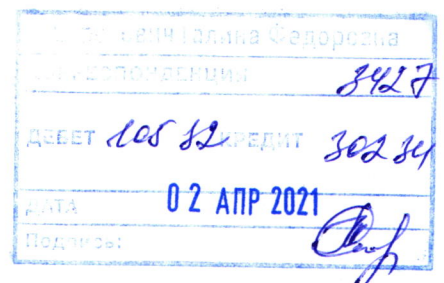 Галина Федоровна
3427
ДЕБЕТ 105 32 КРЕДИТ 302 34
ДАТА 02 АПР 2021
Подпись: